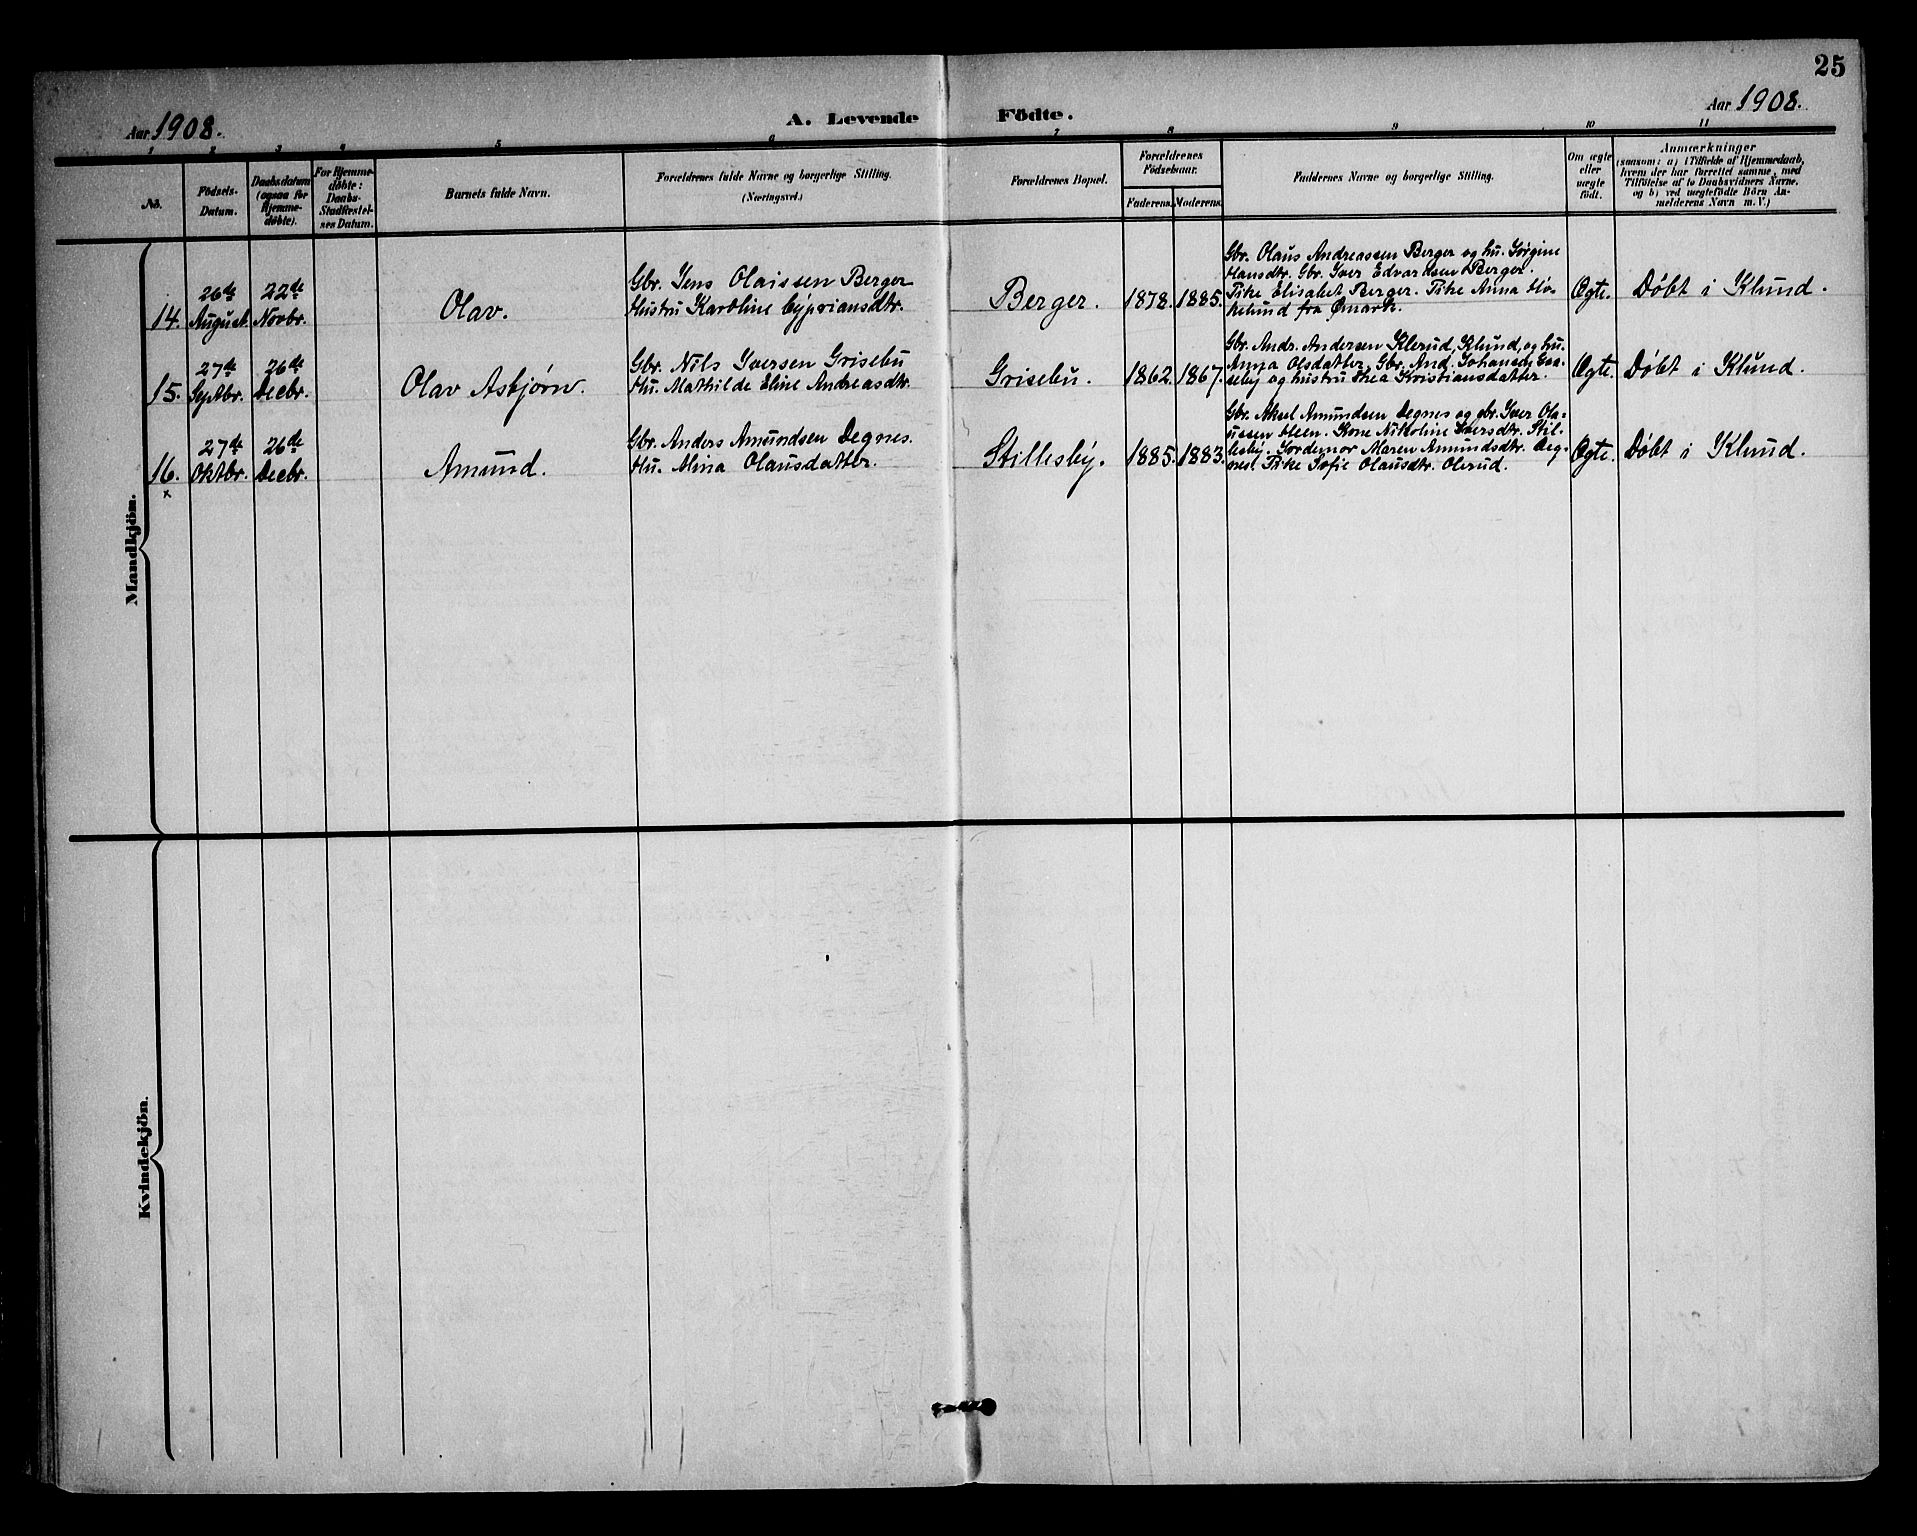 25
Aar 1908.
A. Levende Födte.
Aar 1908.
1 2 3 4 5 6 7 8 9 10 11
No.
Födsels-
Datum.
Daabsdatum
(ogsaa for
Hjemme-
døbte).
For Hjemme-
døbte:
Daabs-
Stadfæstel-
ses Datum.
Barnets fulde Navn.
Forældrenes fulde Navne og borgerlige Stilling.
(Næringsvei.)
Forældrenes Bopæl.
Forældrenes
Födselsaar.
Faderens.
Moderens.
Faddernes Navne og borgerlige Stilling.
Om ægte
eller
uægte
födt.
Anmærkninger
(saasom: a) i Tilfælde af Hjemmedaab,
hvem der har forrettet samme, med
Tilföielse af to Daabsvidners Navne,
og b) ved uægtefödte Börn An-
melderens Navn m. V.)
Mandkjön.
14.
26de
August.
22de
Novbr.
Olav.
Gbr. Jens Olaissen Berger
Hustru Karoline Cypriansdtr.
Berger.
1878.
1885.
Gbr. Olaus Andreassen Berger og hu. Jørgine
Hansdtr. Gbr. Iver Edvardsen Berger.
Pike Elisabet Berger. Pike Anna Hø-
kelund fra Ømark.
Ægte.
Døbt i Klund.
15.
27de
Septbr.
26de
Decbr.
Olav Asbjørn.
Gbr. Nils Iversen Grisebu
Hu. Mathilde Eline Andreasdtr.
Grisebu.
1862.
1867.
Gbr. Andr. Andersen Klerud, Klund, og hu.
Anna Olsdatter, Gbr. And. Johansen
og hustru Thea Kristiansdatter.
Ægte.
Døbt i Klund.
16.
x
27de
Oktbr.
26de
Decbr.
Amund.
Gbr. Anders Amundsen Degnes.
Hu. Alina Olausdatter.
Stillesby.
1885.
1883.
Gbr. Aksel Amundsen Degnes og gbr. Iver Ola-
ussen Heen. Kone Nikoline Iversdtr. Stil-
lesby. Jordemor Maren Amundsdtr. Deg-
nes. Pike Sofie Olausdtr. Olerud.
Ægte.
Døbt i Klund.
Kvindekjön.